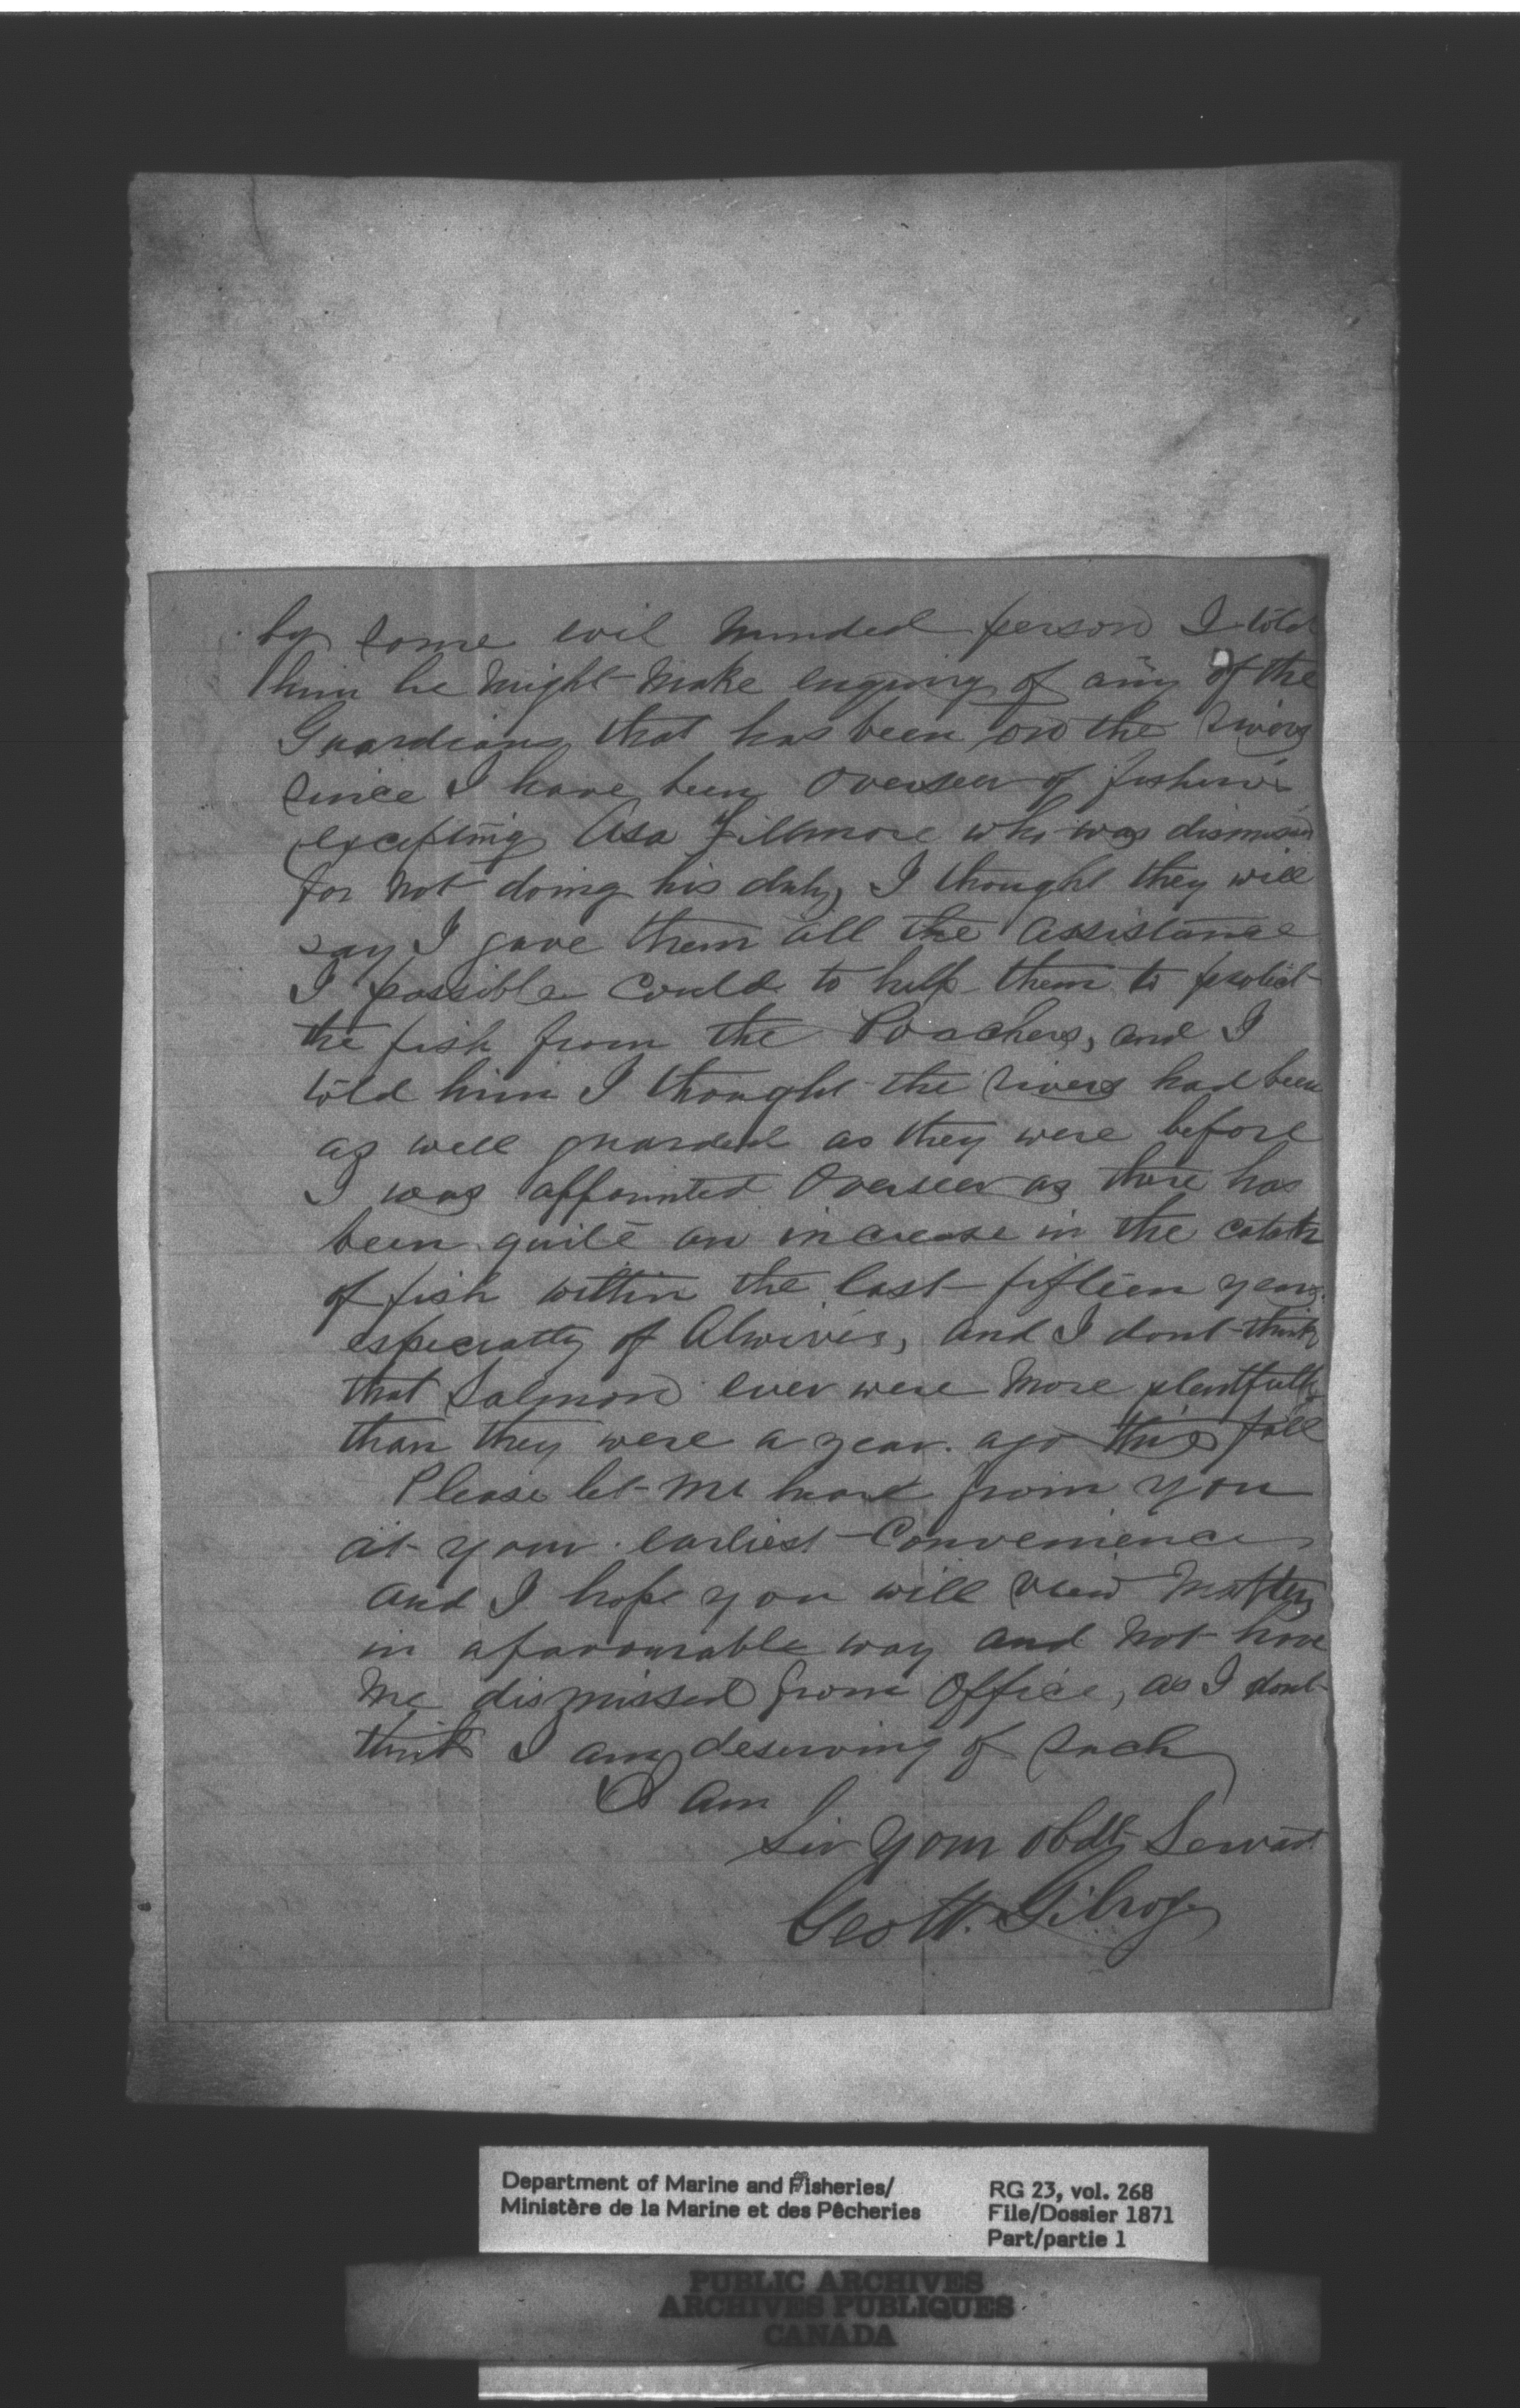 by some evil minded person I told
him he might make enquiry of any of the
Guardians that has been on the rivers
since I have been Overseer of fisheries
excepting Asa Fillmore who was dismissed
for not doing his duty, I thought they will
say I gave them all the assistance
I possible could to help them to protect
the fish from the Poachers, and I
told him I thought the rivers had been
as well guarded as they were before
I was appointed Overseer as there has
been quite an increase in the catch
of fish within the last fifteen years
especially of Alwives, and I dont think
that Salmon ever were more plentfull
than they were a year ago this fall
Please let me hear from you
at your earliest Convenience
and I hope you will view matters
in a favourable way and not have
me dismissed from Office, as I dont
think I am deserving of such
I am
Sir your obdt Servant
Geo H. Gilroy
Department of Marine and Fisheries/
Ministère de la Marine et des Pêcheries
RG 23, vol. 268
File/Dossier 1871
Part/partie 1
PUBLIC ARCHIVES
ARCHIVES PUBLIQUES
CANADA